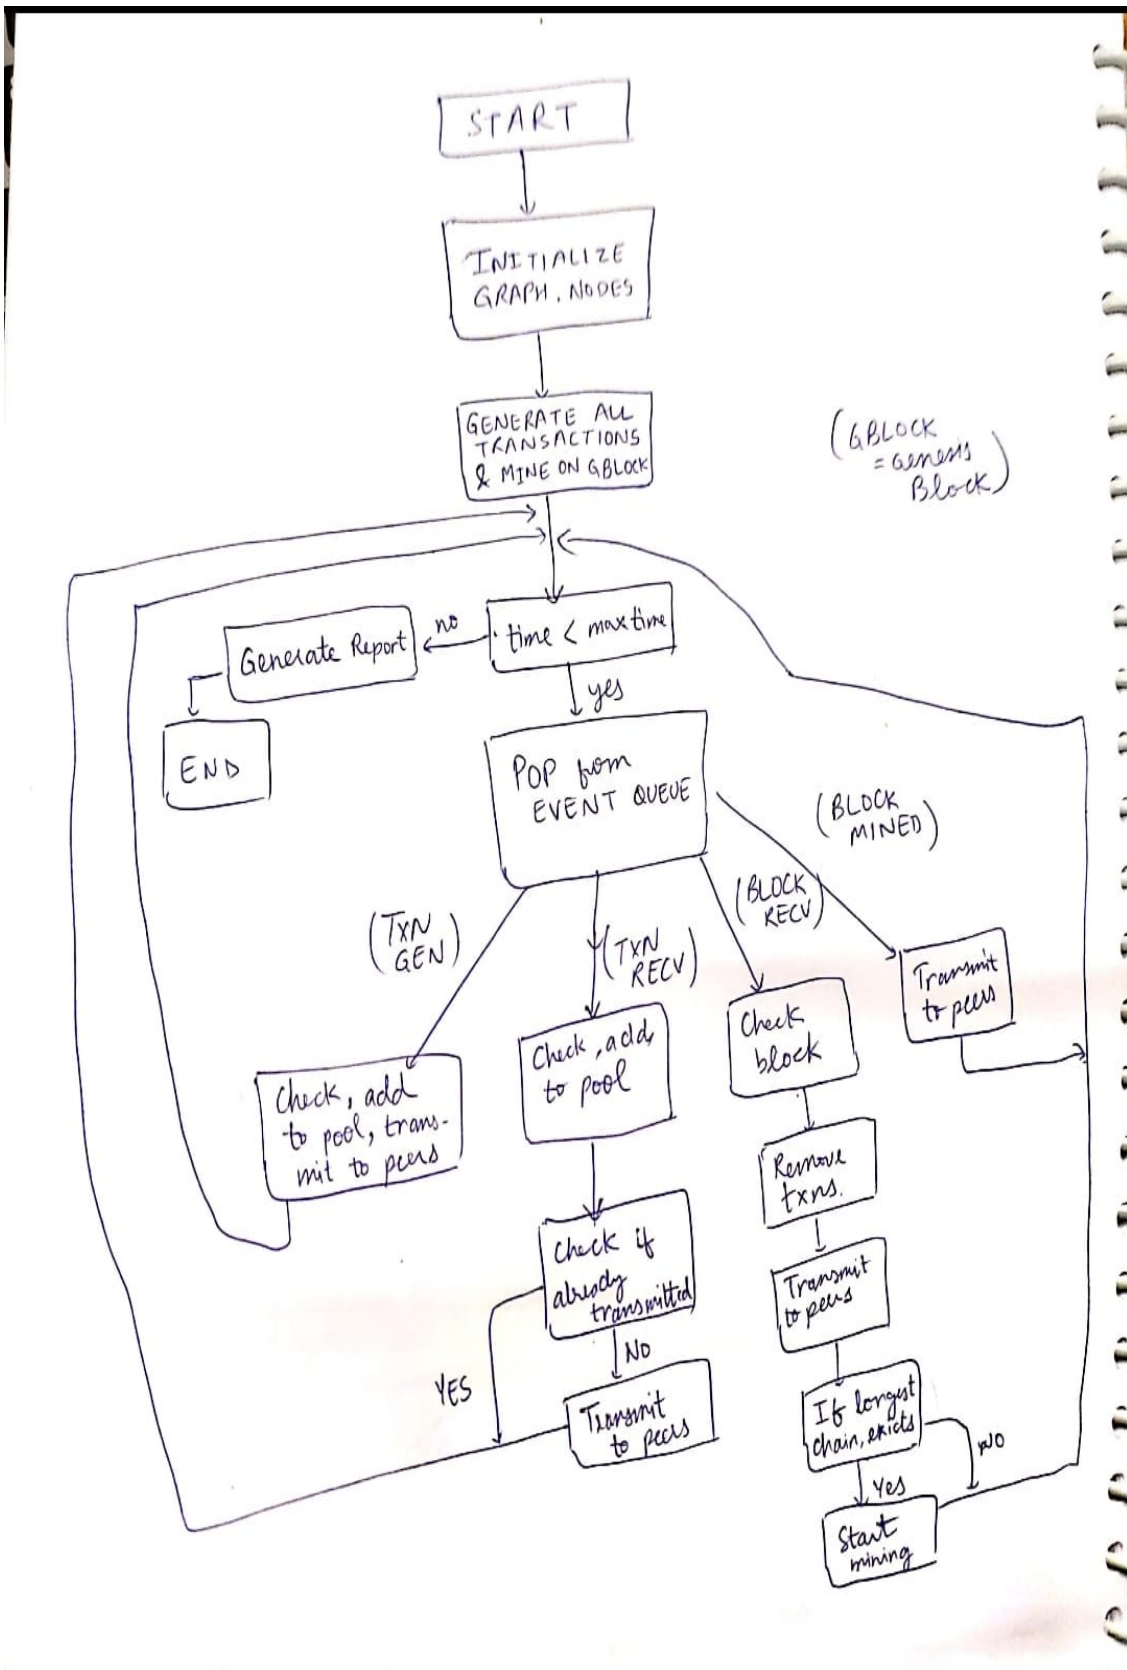 START
INITIALIZE
GRAPH, NODES
GENERATE ALL
TRANSACTIONS
& MINE ON GBLOCK
(GBLOCK
= Genesis
Block)
time < maxtime
no
Generate Report
END
yes
POP from
EVENT QUEUE
(BLOCK
MINED)
(BLOCK
RECV)
(TXN
GEN)
(TXN
RECV)
Transmit
to peers
Check
block
Check, add
to pool
Check, add
to pool, trans-
mit to peers
Remove
txns.
Check if
already
transmitted
Transmit
to peers
NO
YES
Transmit
to peers
If longest
chain, exists
NO
Yes
Start
mining